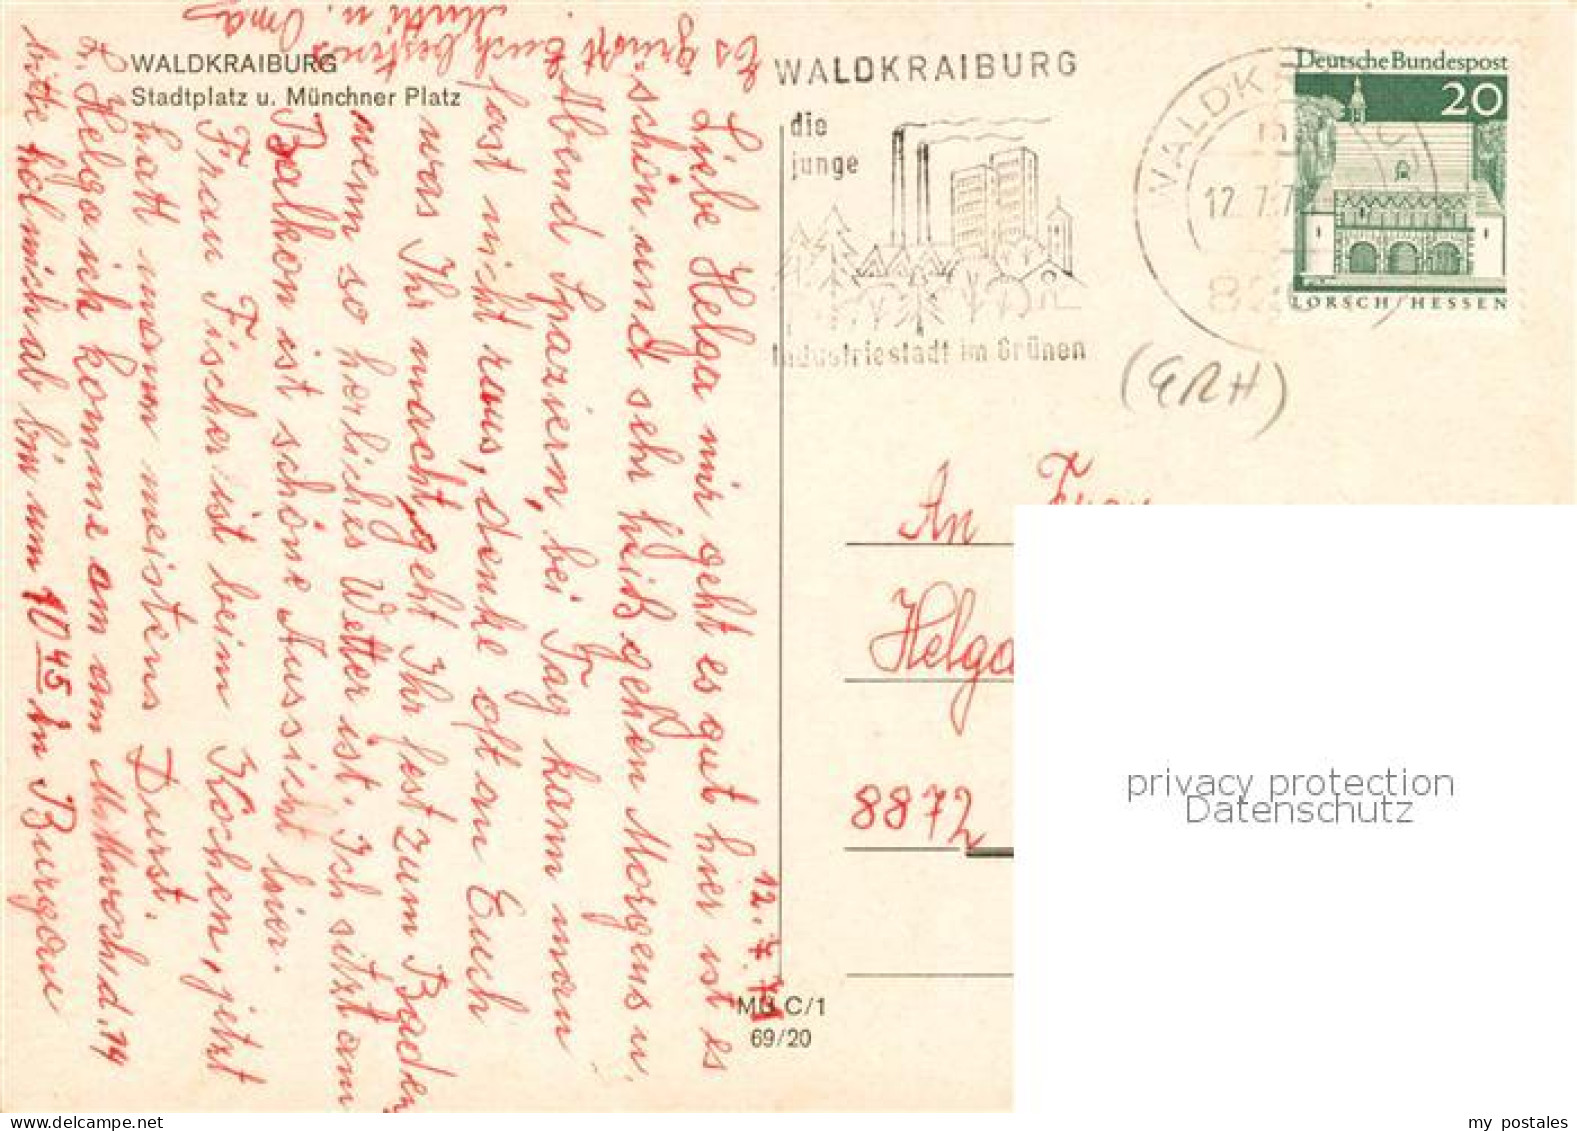 WALDKRAIBURG
Stadtplatz u. Münchner Platz
12. 7. 71
Liebe Helga mir geht es gut hier ist es
schön und sehr heiß gehen Morgens u.
Abend Spaziern, bei Tag kann man
fast nicht raus, denke oft an Euch
was Ihr macht, geht Ihr fest zum Baden
wenn so herliches Wetter ist. Ich sitzt am
Balkon ist schöne Aussicht hier.
Frau Fischer ist beim Kochen, jetzt
hatt mann meistens Durst.
L. Helga ich komme am Mittwoch d. 14
bitte hol mich ab bin um 10 45 in Burgau
Es grüßt Euch bestens
Mutti u. Oma
WALDKRAIBURG
die
junge
Industriestadt im Grünen
12. 7. 7
Deutsche Bundespost
20
LORSCH/HESSEN
(GRH)
An Frau
Helga
8872
C/1
69/20
privacy protection
Datenschutz
my postales